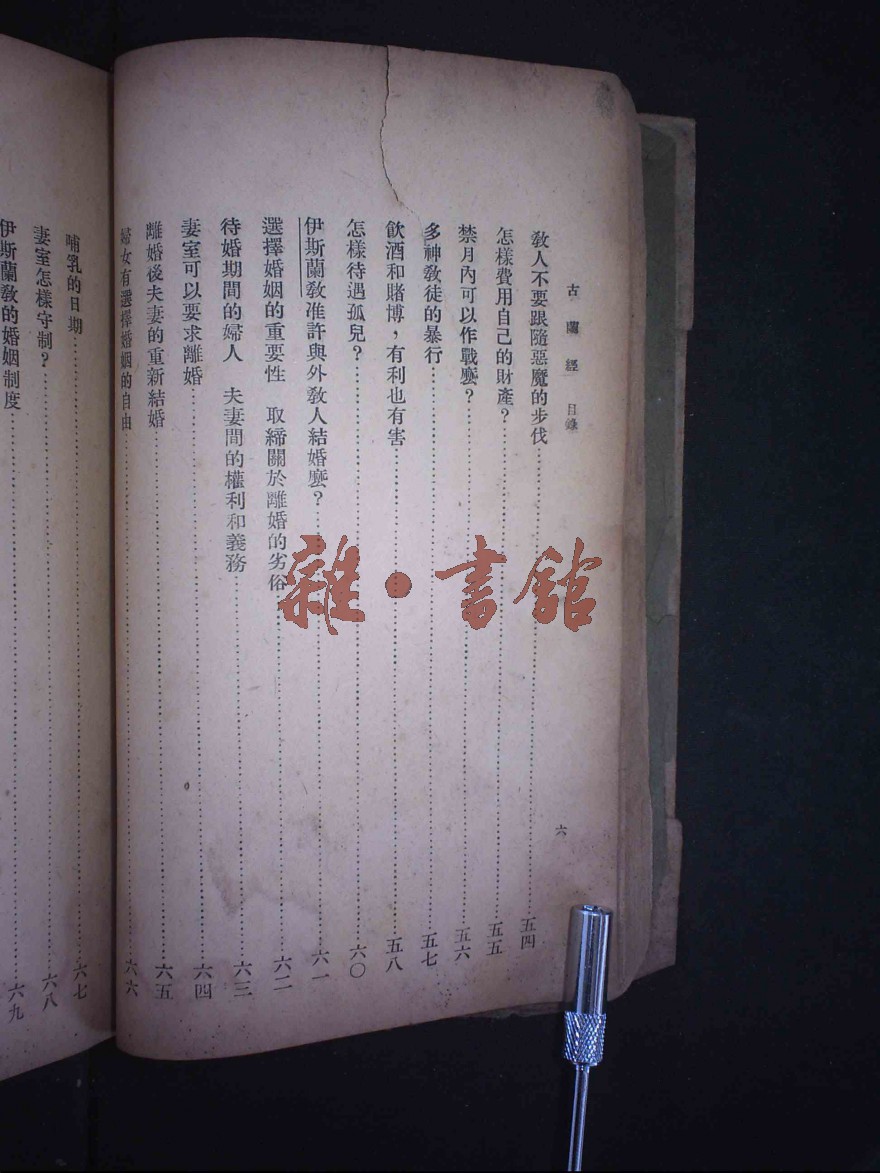 古蘭經 目錄
六
敎人不要跟隨惡魔的步伐……五四
怎樣費用自己的財產?……五五
禁月內可以作戰麽?……五六
多神敎徒的暴行……五七
飮酒和賭博，有利也有害……五八
怎樣待遇孤兒?……六〇
伊斯蘭敎准許與外敎人結婚麽?……六一
選擇婚姻的重要性 取締關於離婚的劣俗……六二
待婚期間的婦人 夫妻間的權利和義務……六三
妻室可以要求離婚……六四
離婚後夫妻的重新結婚……六五
婦女有選擇婚姻的自由……六六
哺乳的日期……六七
妻室怎樣守制?……六八
伊斯蘭敎的婚姻制度……六九
雜·書館